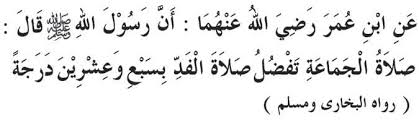 عَنِ ابْنِ عُمَرَ رَضِيَ اللهُ عَنْهُمَا : أَنَّ رَسُوْلَ اللهِ ﷺ قَالَ :
صَلَاةُ الْجَمَاعَةِ تَفْضُلُ صَلَاةَ الْفَذِّ بِسَبْعٍ وَعِشْرِيْنَ دَرَجَةً
( رواه البخارى ومسلم )